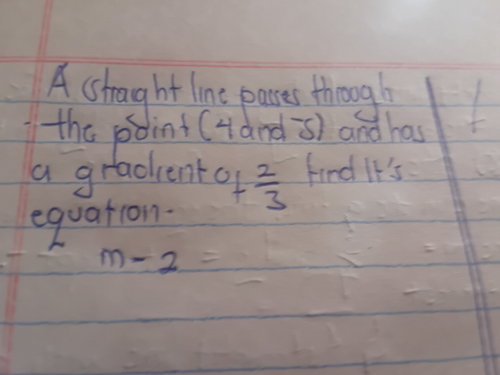 A straight line passes through
the point (4 and -5) and has
a gradient of 2/3 find It's
equation.
m - 2